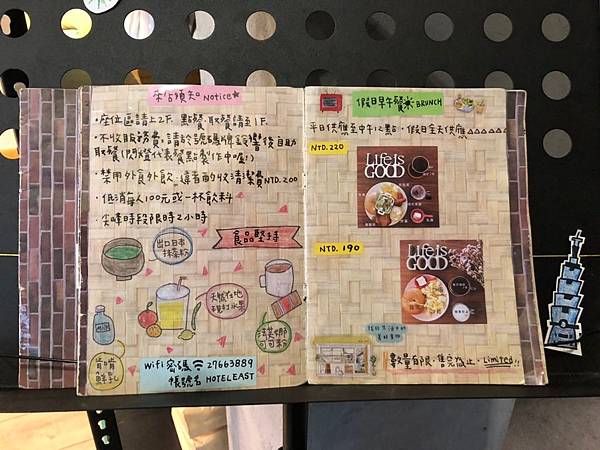 來店須知 Notice★
・座位區請上2F. 點餐.取餐請至1F.
・不收服務費,請於號碼牌響後自助
取餐(閃燈代表餐點製作中喔!)
・禁用外食外飲.違者酌收清潔費NTD.200
・低消每人100元或一杯飲料
・尖峰時段限時2小時
食品堅持
進口日本
抹茶粉
天然在地
現打水果
法芙娜
可可粉
MILK
鮮乳
Wifi密碼 27663889
帳號名 HOTELEAST
假日早午餐 BRUNCH
平日供應至中午12點.假日全天供應
NTD.220
LIFE IS
GOOD
NTD.190
LIFE IS
GOOD
數量有限.售完為止.Limited!!